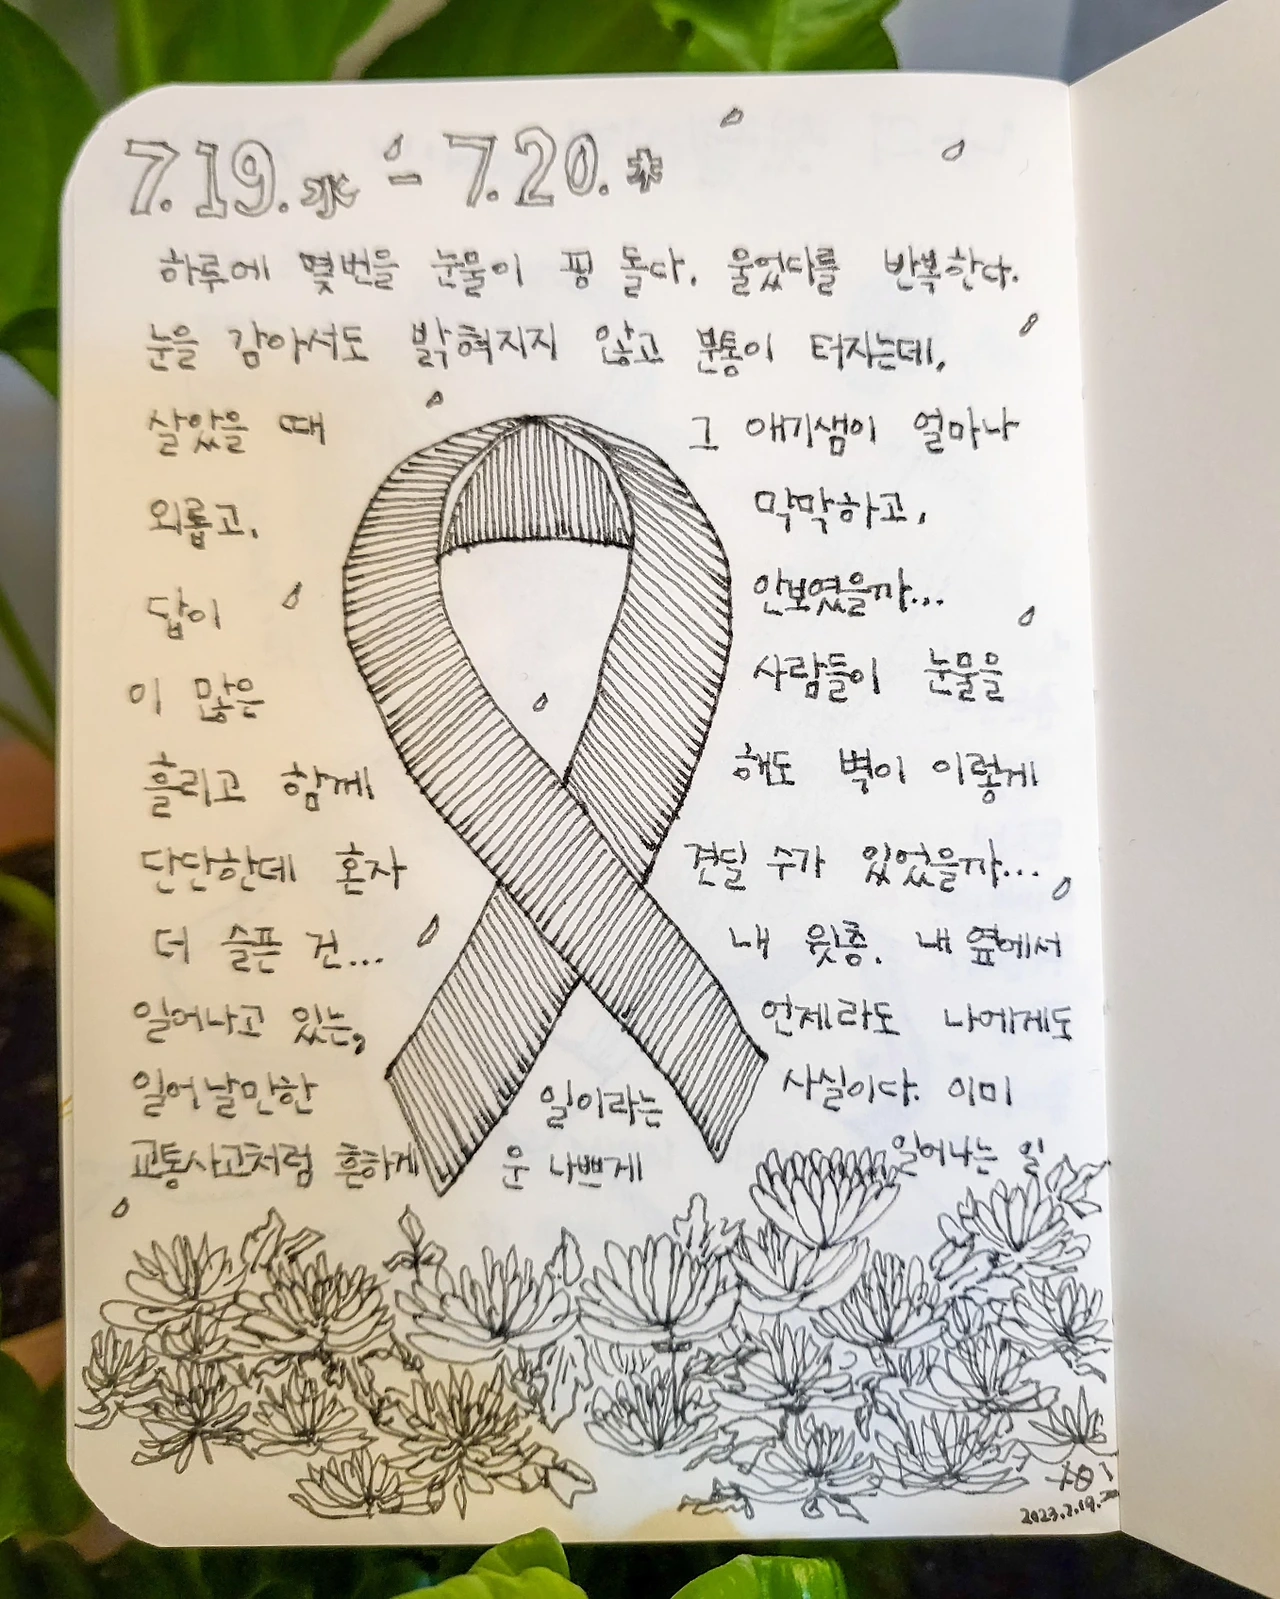 7.19.水 - 7.20.木
하루에 몇번을 눈물이 핑 돌다. 울었다를 반복한다.
눈을 감아서도 밝혀지지 않고 분통이 터지는데,
살았을 때 그 애기샘이 얼마나
외롭고, 막막하고,
답이 안보였을까...
이 많은 사람들이 눈물을
흘리고 함께 해도 벽이 이렇게
단단한데 혼자 견딜 수가 있었을까...
더 슬픈 건... 내 윗층. 내 옆에서
일어나고 있는, 언제라도 나에게도
일어날만한 일이라는 사실이다. 이미
교통사고처럼 흔하게 운 나쁘게 일어나는 일
2023.7.19.20